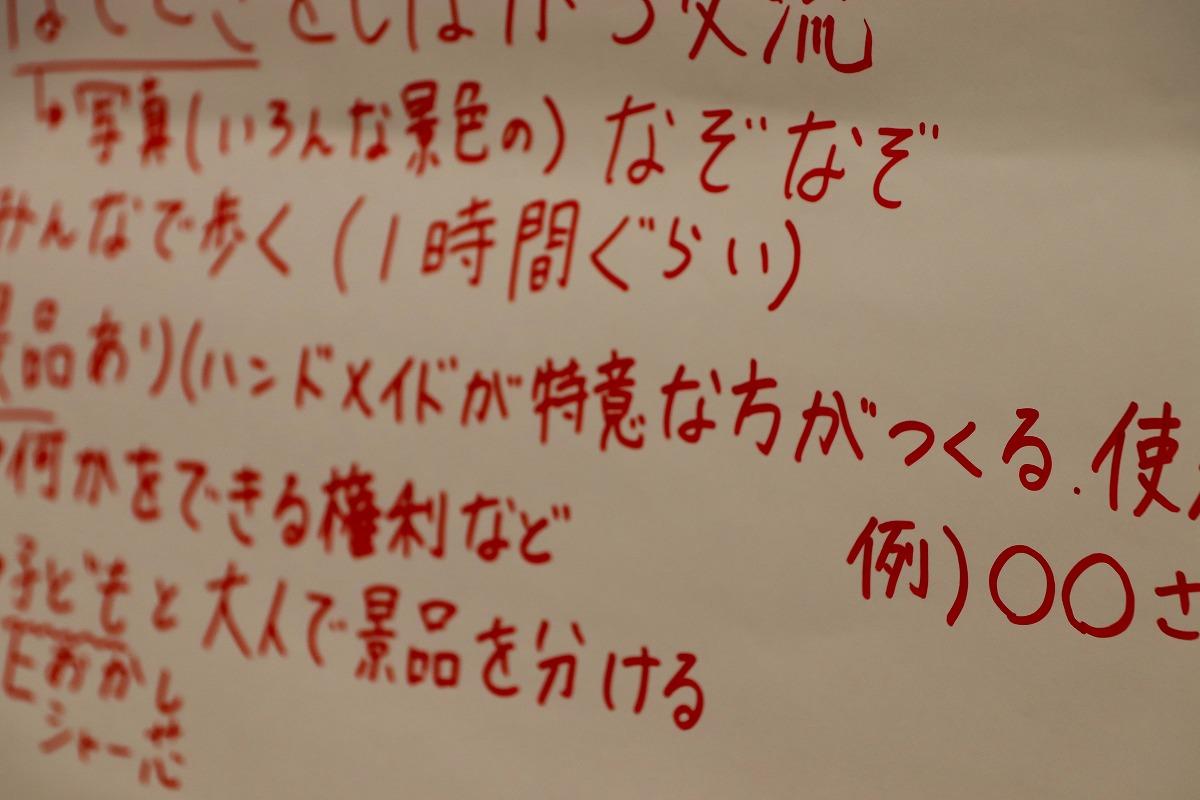 をしながら交流
写真(いろんな景色の) なぞなぞ
みんなで歩く (1時間ぐらい)
景品あり(ハンドメイドが特意な方がつくる.使
何かをできる権利など
例)○○さ
子どもと大人で景品を分ける
おかし
シャー芯